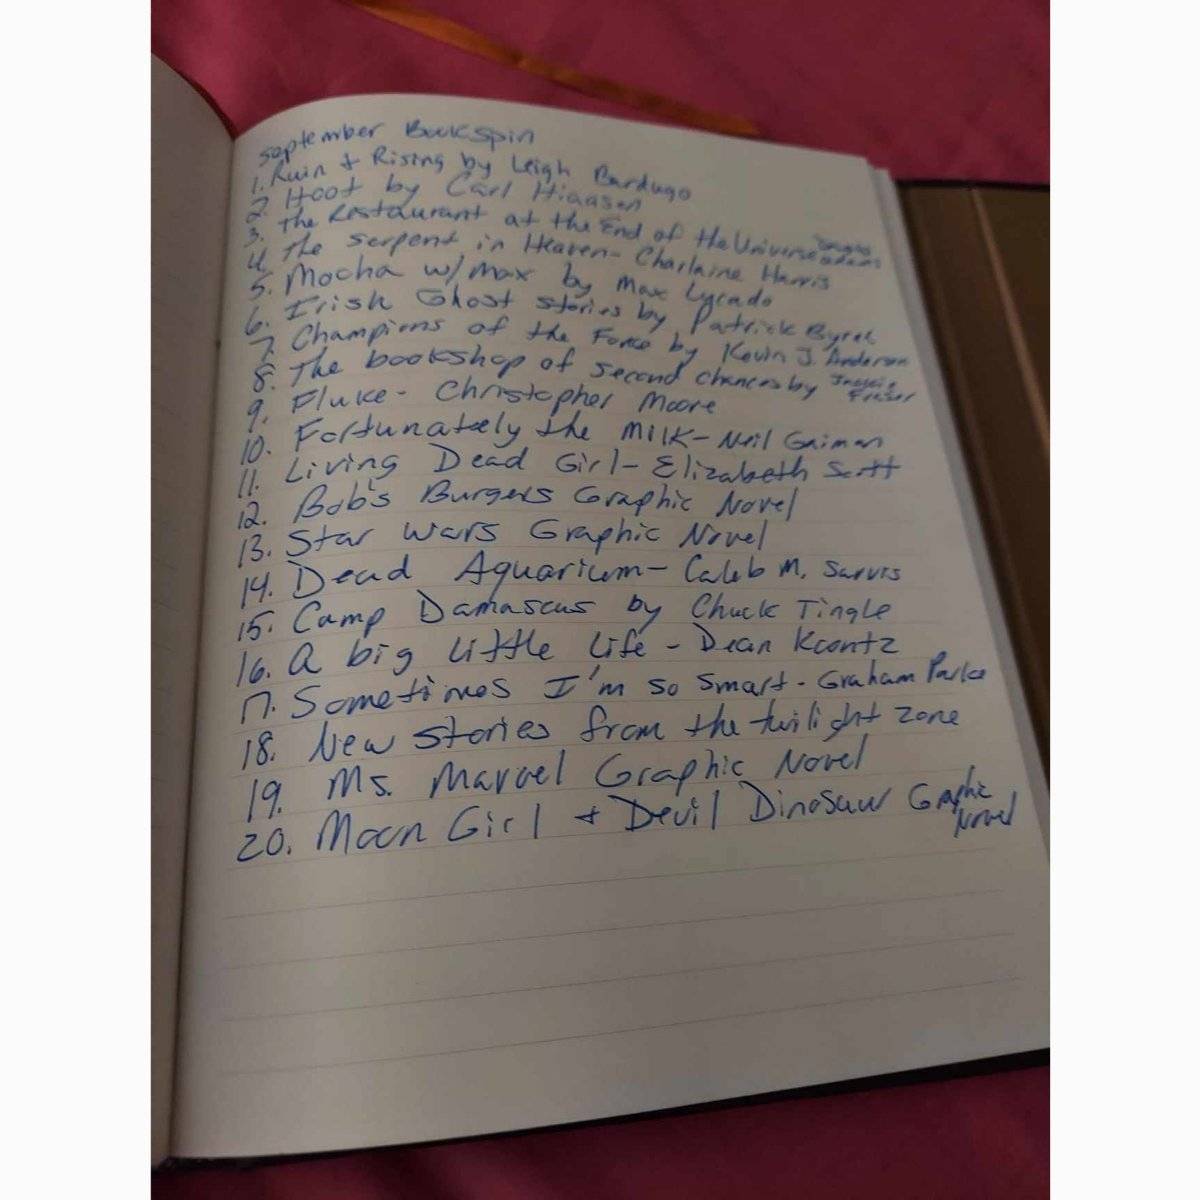 September Bookspin
1. Ruin + Rising by Leigh Bardugo
2. Hoot by Carl Hiaasen
3. The Restaurant at the End of the Universe Douglas Adams
4. The Serpent in Heaven - Charlaine Harris
5. Mocha w/ Max by Max Lucado
6. Irish Ghost Stories by Patrick Byrne
7. Champions of the Force by Kevin J. Anderson
8. The bookshop of second chances by Jackie Fraser
9. Fluke - Christopher Moore
10. Fortunately the Milk - Neil Gaiman
11. Living Dead Girl - Elizabeth Scott
12. Bob's Burgers Graphic Novel
13. Star Wars Graphic Novel
14. Dead Aquarium - Caleb M. Sarvis
15. Camp Damascus by Chuck Tingle
16. A big little life - Dean Koontz
17. Sometimes I'm so smart - Graham Parke
18. New stories from the twilight zone
19. Ms. Marvel Graphic Novel
20. Moon Girl + Devil Dinosaur Graphic Novel